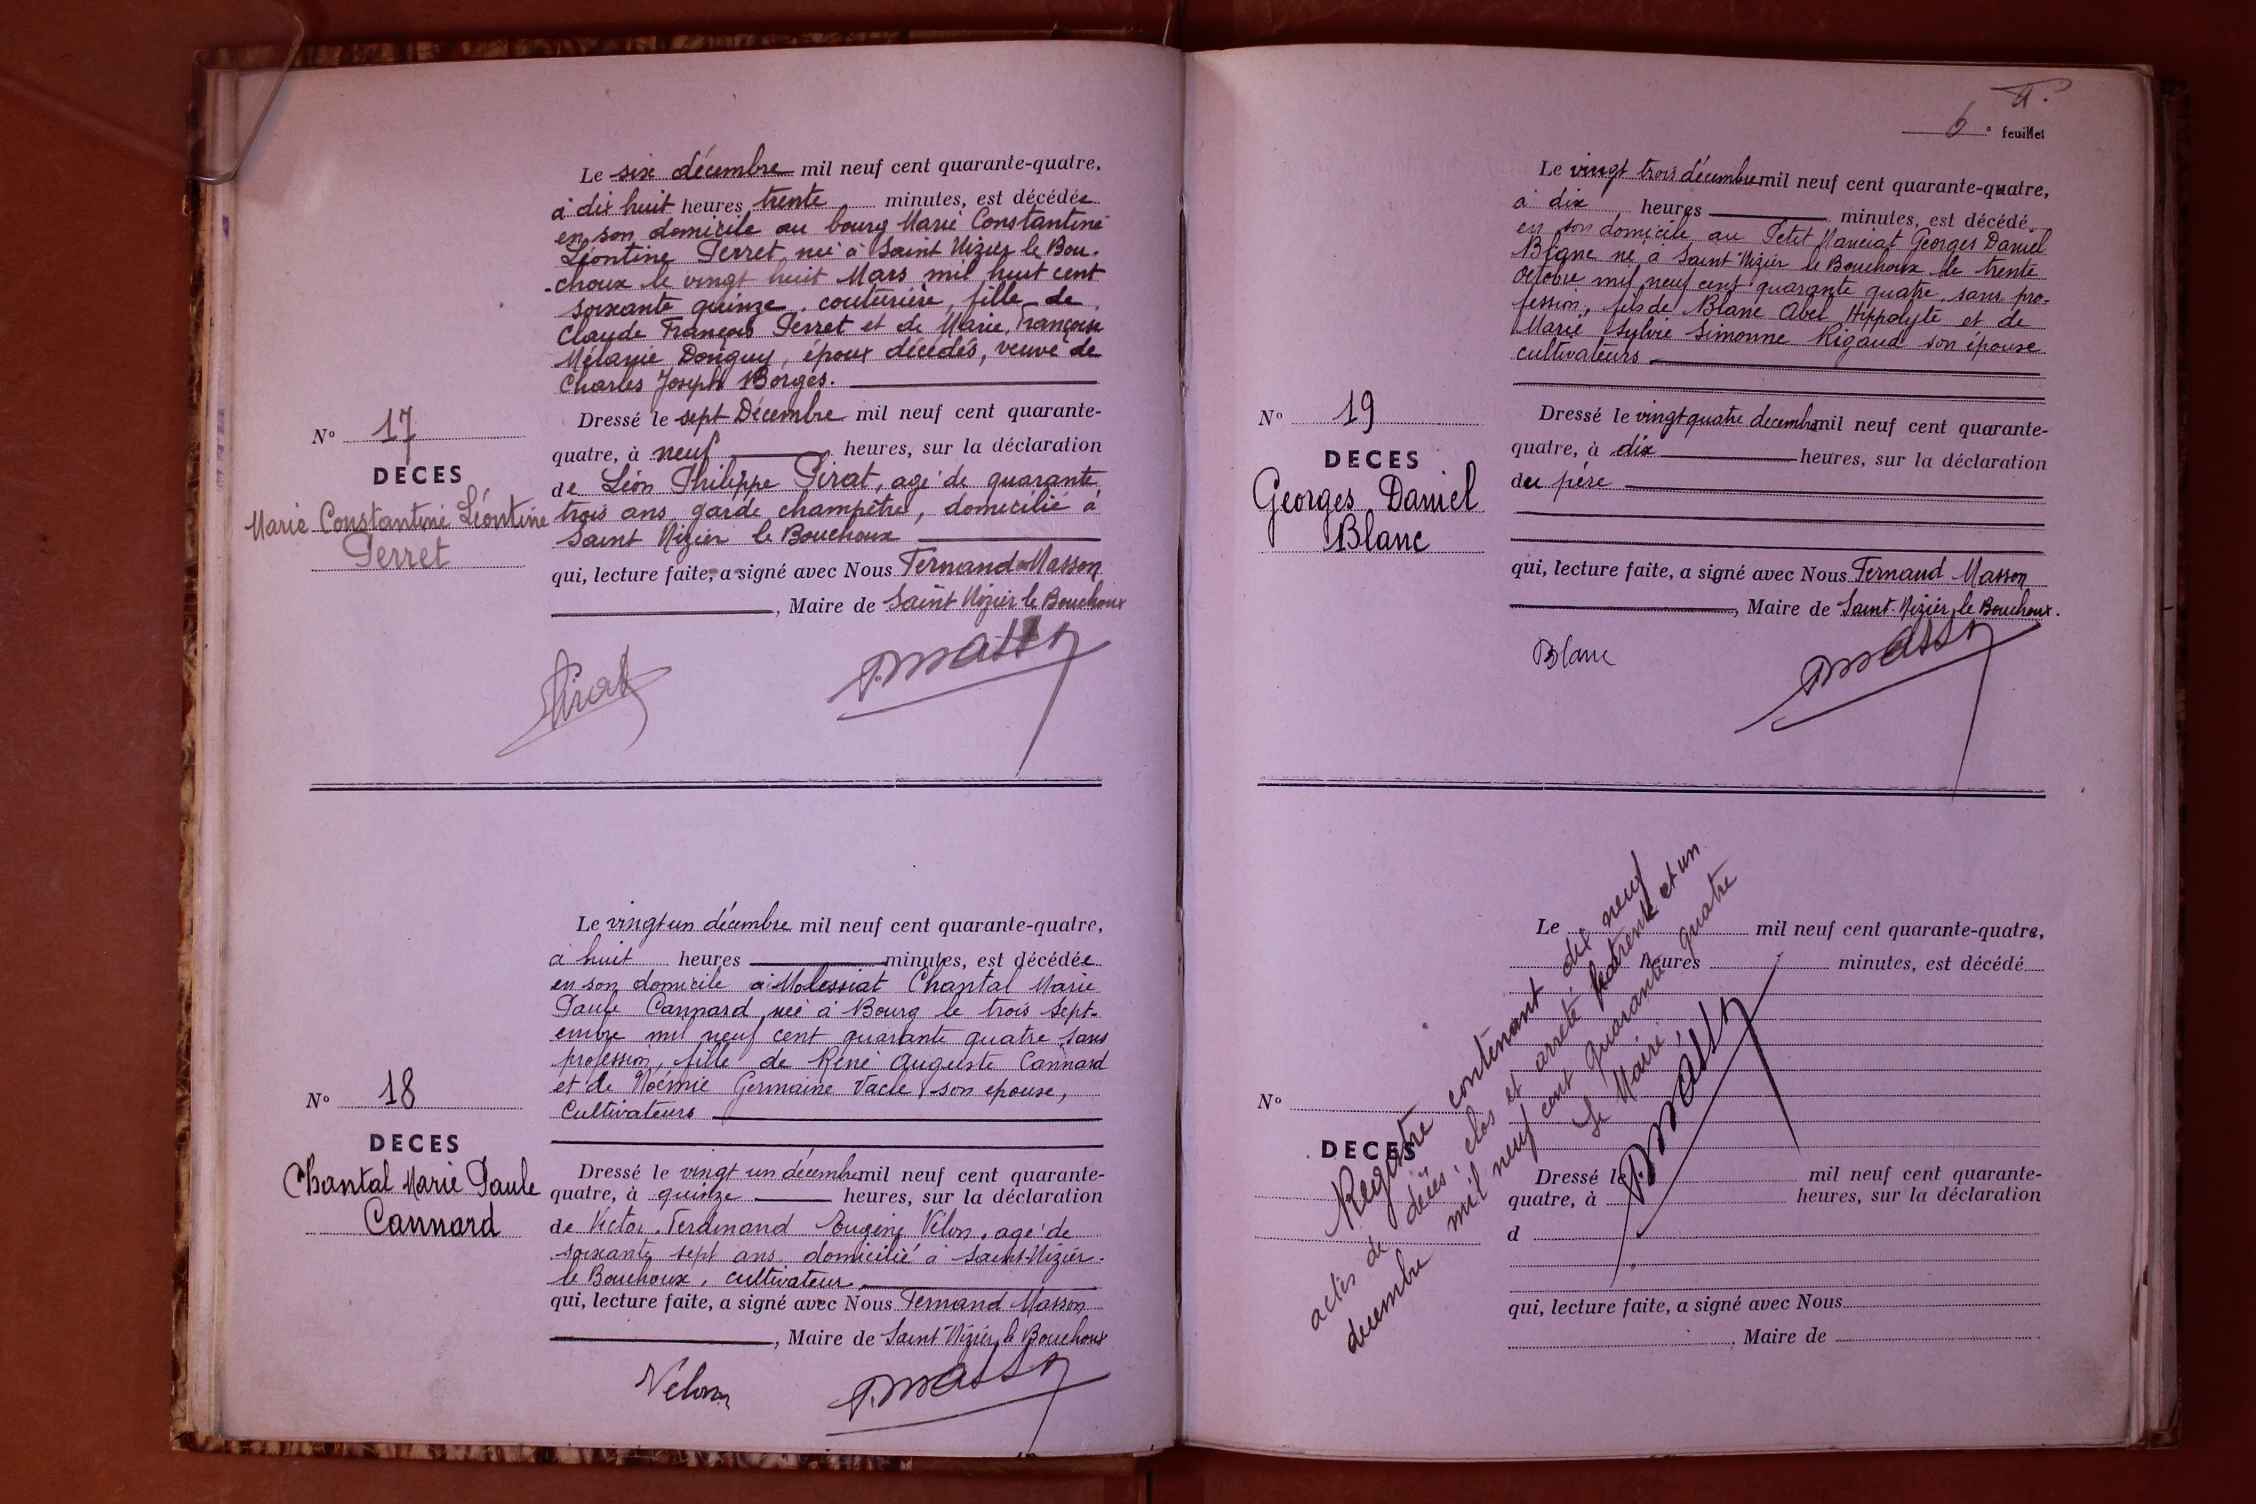 Le six décembre mil neuf cent quarante-quatre,
à dix huit heures trente minutes, est décédée
en son domicile au bourg Marie Constantine
Léontine Perret née à Saint Nizier le Bou-
-choux le vingt huit Mars mil huit cent
soixante quinze, couturière, fille de
Claude François Perret et de Marie Françoise
Mélanie Donguy, époux décédés, veuve de
Charles Joseph Borges.
N° 17
DECES
Marie Constantine Léontine
Perret
Dressé le sept Décembre mil neuf cent quarante-
quatre, à neuf heures, sur la déclaration
de Léon Philippe Pirat, agé de quarante
trois ans garde champêtre, domicilié à
Saint Nizier le Bouchoux
qui, lecture faite, a signé avec Nous Fernand Masson
, Maire de Saint Nizier le Bouchoux
Pirat
F. Masson
Le vingt un décembre mil neuf cent quarante-quatre,
à huit heures minutes, est décédée
en son domicile à Molessiat Chantal Marie
Paule Cannard née à Bourg le trois Sept-
embre mil neuf cent quarante quatre sans
profession, fille de René Auguste Cannard
et de Noémie Germaine Vacle son epouse,
Cultivateurs
N° 18
DECES
Chantal Marie Paule
Cannard
Dressé le vingt un décembre mil neuf cent quarante-
quatre, à quinze heures, sur la déclaration
de Victor Ferdinand Eugène Vélon, agé de
soixante sept ans domicilié à Saint-Nizier-
le Bouchoux, cultivateur
qui, lecture faite, a signé avec Nous Fernand Masson
, Maire de Saint Nizier le Bouchoux
Vélon
F. Masson
6e feuillet
Le vingt trois décembre mil neuf cent quarante-quatre,
à dix heures minutes, est décédé
en son domicile au Petit Manciat Georges Daniel
Blanc né à Saint Nizier le Bouchoux le trente
octobre mil neuf cent quarante quatre, sans pro-
fession, fils de Blanc Abel Hippolyte et de
Marie Sylvie Simonne Rigaud son épouse
cultivateurs
N° 19
DECES
Georges Daniel
Blanc
Dressé le vingt quatre decembre mil neuf cent quarante-
quatre, à dix heures, sur la déclaration
du père
qui, lecture faite, a signé avec Nous Fernand Masson
, Maire de Saint-Nizier le Bouchoux.
Blanc
F. Masson
Le mil neuf cent quarante-quatre,
heures minutes, est décédé
N°
DECES
Dressé le mil neuf cent quarante-
quatre, à heures, sur la déclaration
d
qui, lecture faite, a signé avec Nous
, Maire de
Registre contenant dix neuf
actes de décès, clos et arrêté le trente et un
decembre mil neuf cent quarante quatre
Le Maire
F. Masson